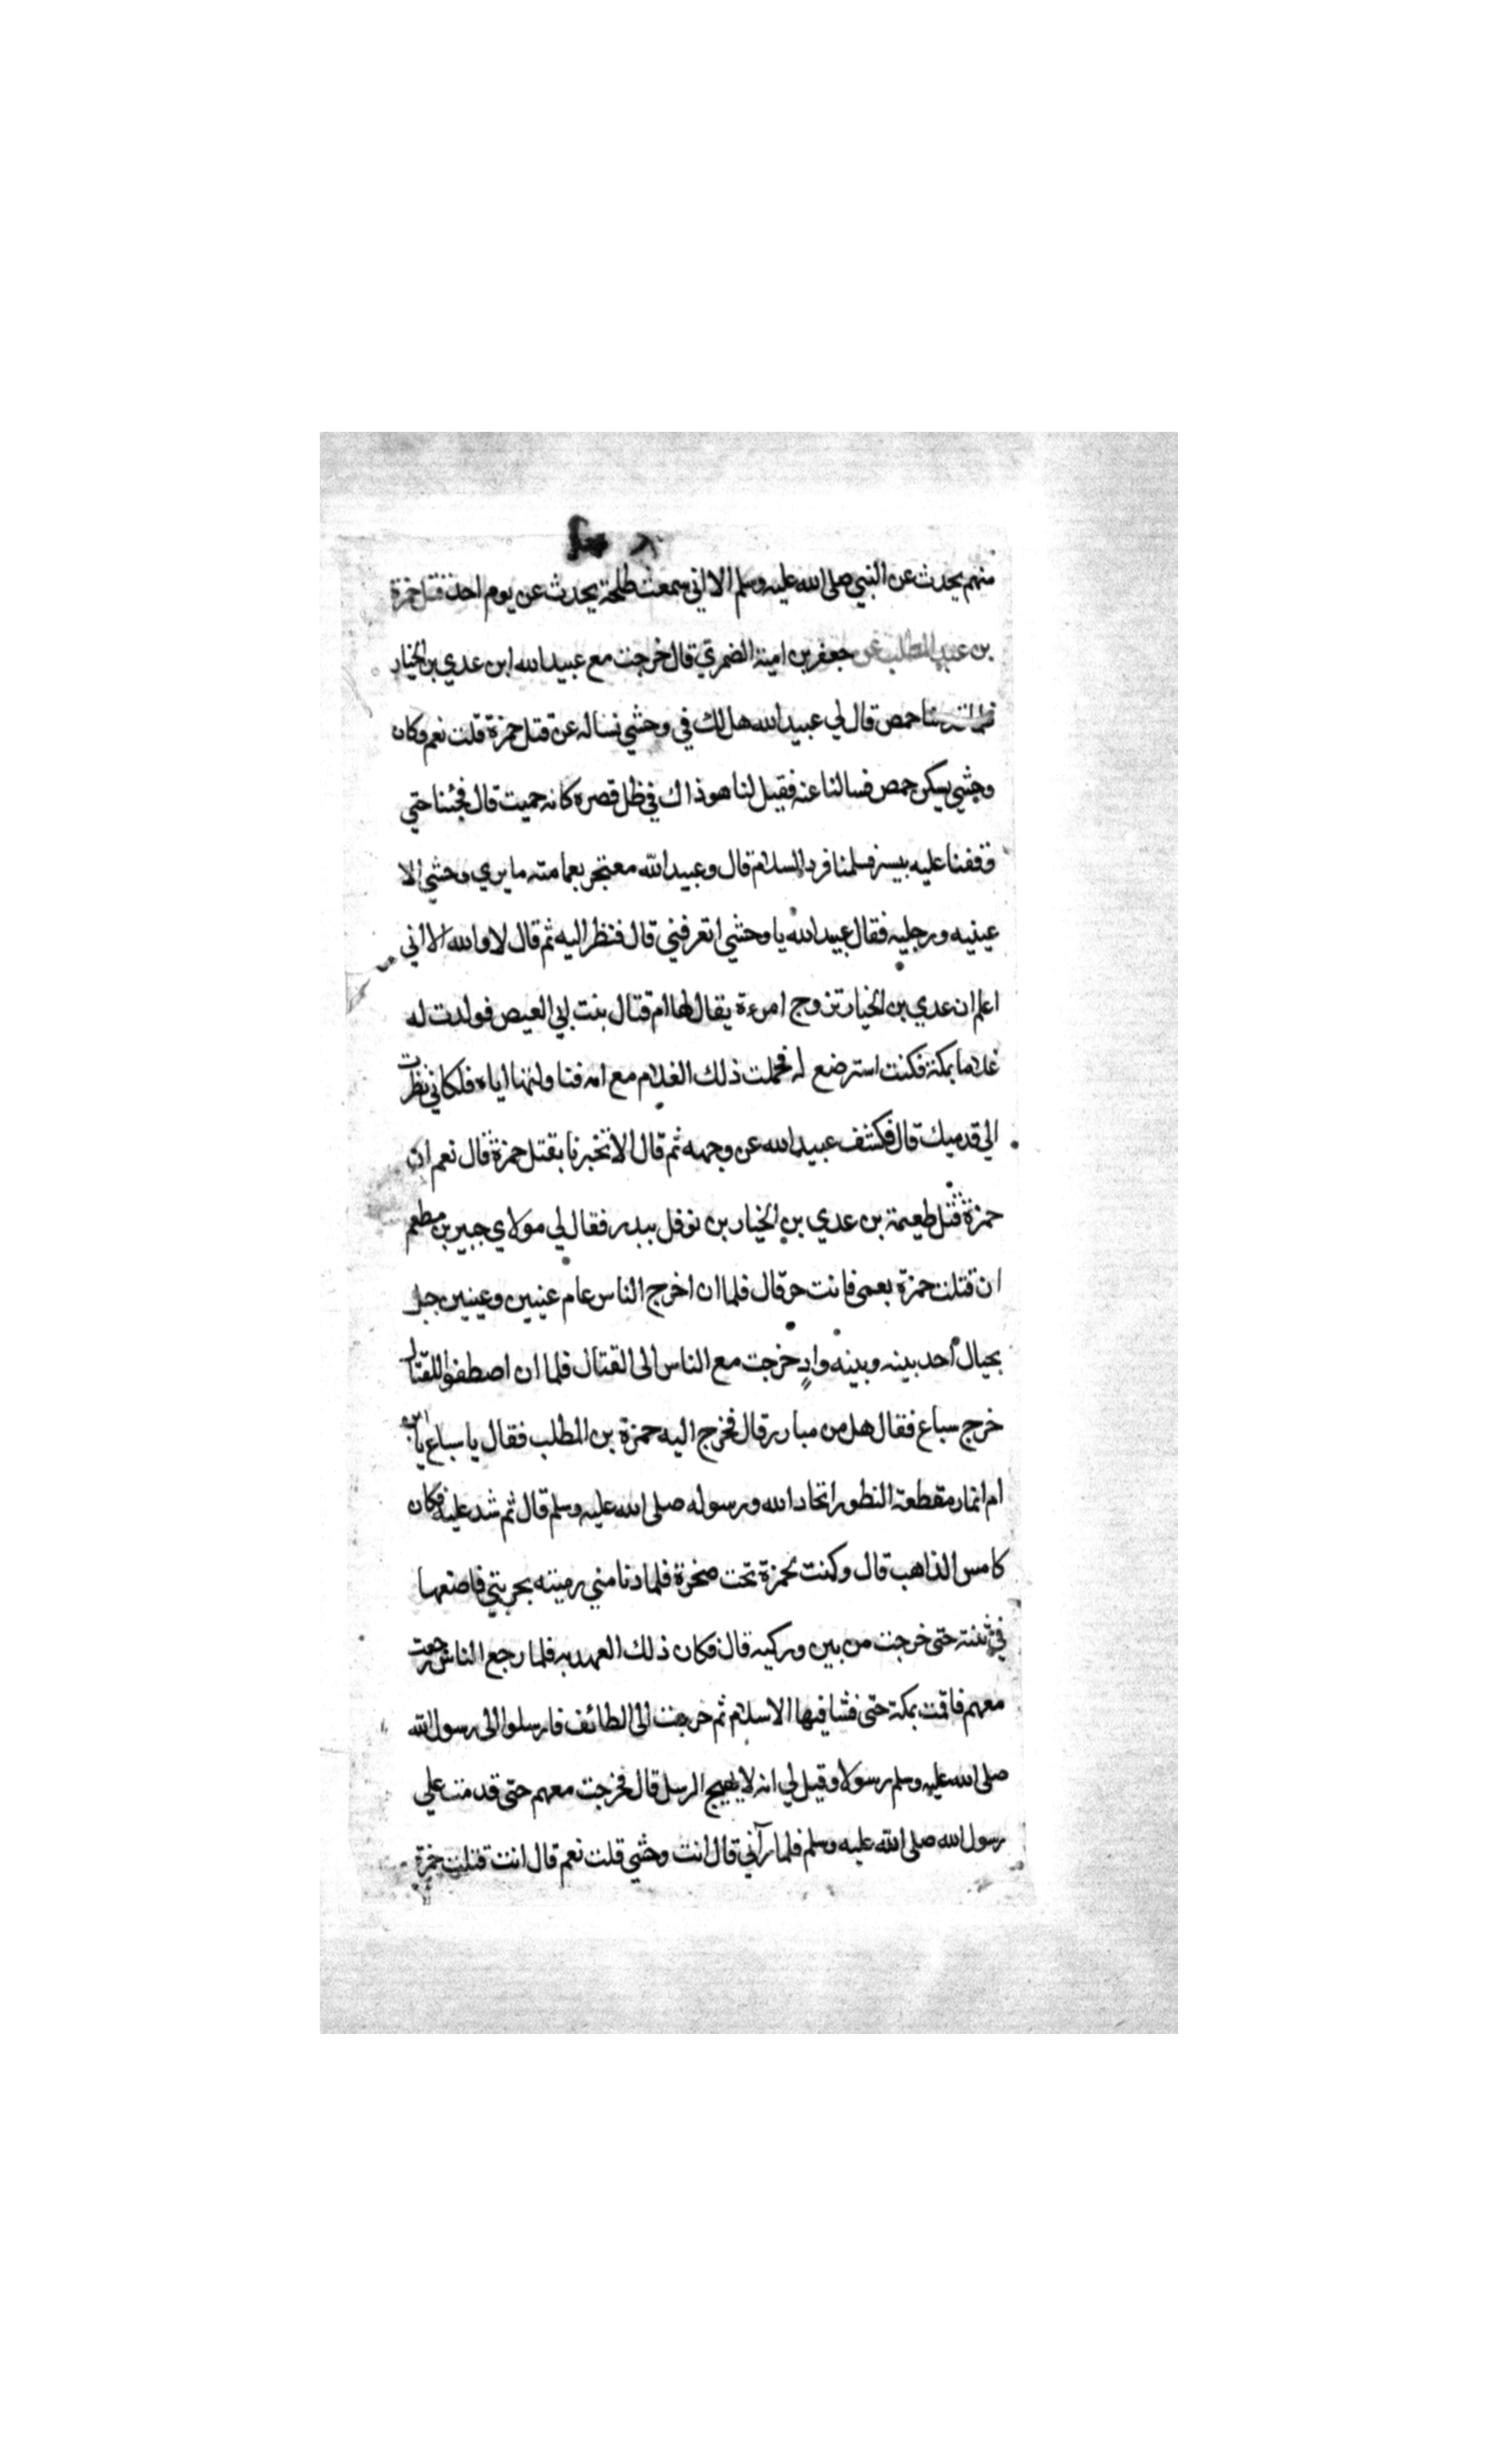 منهم يحدث عن النبي صلى الله عليه وسلم الا اني سمعت طلحة يحدث عن يوم احد قتل حمزة
بن عبد المطلب عن جعفر بن امية الضمري قال خرجت مع عبيد الله ابن عدي بن الخيار
فلما قدمنا حمص قال لي عبيد الله هل لك في وحشي نساله عن قتل حمزة قلت نعم وكان
وحشي يسكن حمص فسالنا عنه فقيل لنا هو ذاك في ظل قصره كانه حميت قال فجئنا حتي
وقفنا عليه بيسير فسلمنا فرد السلام قال وعبيد الله معتجر بعمامته ما يري وحشي الا
عينيه ورجليه فقال عبيد الله يا وحشي اتعرفني قال فنظر اليه ثم قال لا والله الا اني
اعلم ان عدي بن الخيار تزوج امرءة يقال لها ام قتال بنت ابي العيص فولدت له
غلاما بمكة فكنت استرضع له فحملت ذلك الغلام مع امه فناولتها اياه فلكاني نظرت
الي قدميك قال فكشف عبيد الله عن وجهه ثم قال الا تخبرنا بقتل حمزة قال نعم ان
حمزة قتل طعيمة بن عدي بن الخيار بن نوفل ببدر فقال لي مولاي جبير بن مطعم
ان قتلت حمزة بعمي فانت حر قال فلما ان اخرج الناس عام عنيين وعينين جبل
بحيال احد بينه وبينه وادٍ خرجت مع الناس الى القتال فلما ان اصطفوا للقتال
خرج سباع فقال هل من مبارز قال فخرج اليه حمزة بن المطلب فقال يا سباع يا ابن
ام انمار مقطعة النطور اتحاد الله ورسوله صلى الله عليه وسلم قال ثم شد عليه فكان
كامس الذاهب قال وكنت لحمزة تحت صخرة فلما دنا مني رميته بحربتي فاضعها
في ثنته حتى خرجت من بين وركيه قال فكان ذلك العهد به فلما رجع الناس رجعت
معهم فاقمت بمكة حتى فشا فيها الاسلام ثم خرجت الى الطائف فارسلوا الى رسول الله
صلى الله عليه وسلم رسولا وقيل لي انه لا يهيج الرسل قال فخرجت معهم حتى قدمت علي
رسول الله صلى الله عليه وسلم فلما رآني قال انت وحشي قلت نعم قال انت قتلت حمزة